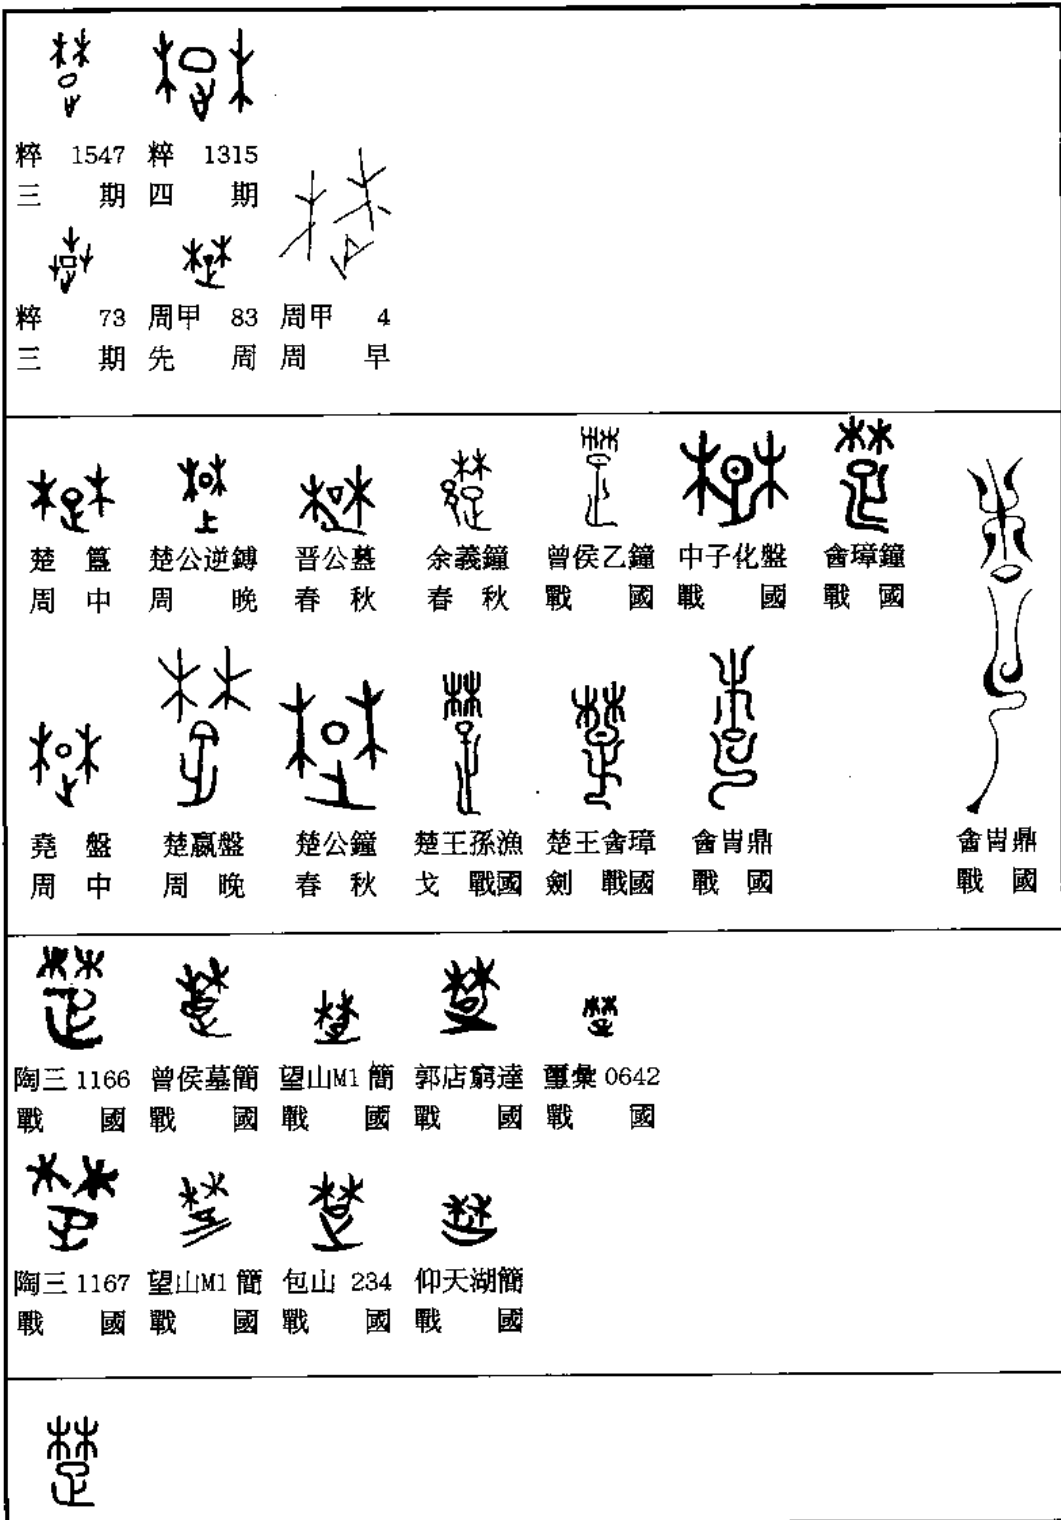 粹 1547 粹 1315
三期 四期
粹 73 周甲 83 周甲 4
三期 先周 周早
楚簋 楚公逆鎛 晋公𥂴 余義鐘 曾侯乙鐘 中子化盤 酓璋鐘
周中 周晚 春秋 春秋 戰國 戰國 戰國
堯盤 楚嬴盤 楚公鐘 楚王孫漁 楚王酓璋 酓胄鼎 酓胄鼎
周中 周晚 春秋 戈 戰國 劍 戰國 戰國 戰國
陶三 1166 曾侯墓簡 望山M1簡 郭店窮達 璽彙 0642
戰國 戰國 戰國 戰國 戰國
陶三 1167 望山M1簡 包山 234 仰天湖簡
戰國 戰國 戰國 戰國
楚